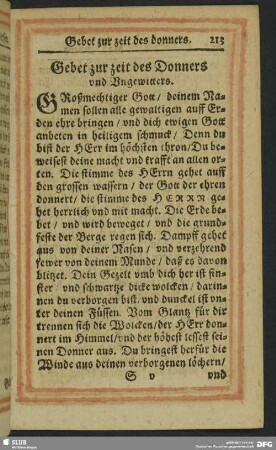 Gebet zur zeit des donners. 213
Gebet zur zeit des Donners
vnd Vngewitters.
GRoßmechtiger Gott/ deinem Na-
men sollen alle gewaltigen auff Er-
den ehre bringen/ vnd dich ewigen Gott
anbeten in heiligem schmuck/ Denn du
bist der HErr im höchsten thron/ Du be-
weisest deine macht vnd krafft an allen or-
ten. Die stimme des HErrn gehet auff
den grossen wassern/ der Gott der ehren
donnert/ die stimme des HERRN ge-
het herrlich vnd mit macht. Die Erde be-
bet/ vnd wird beweget/ vnd die grund-
feste der Berge regen sich. Dampff gehet
aus von deiner Nasen/ vnd verzehrend
fewer von deinem Munde/ daß es davon
blitzet. Dein Gezelt vmb dich her ist fin-
ster/ vnd schwartze dicke wolcken/ darin-
nen du verborgen bist. vnd dunckel ist vn-
ter deinen Füssen. Vom Glantz für dir
trennen sich die Wolcken/ der HErr don-
nert im Himmel/ vnd der höhest lesset sei-
nen Donner aus. Du bringest herfür die
Winde aus deinen verborgenen löchern/
S v vnd
SLUB